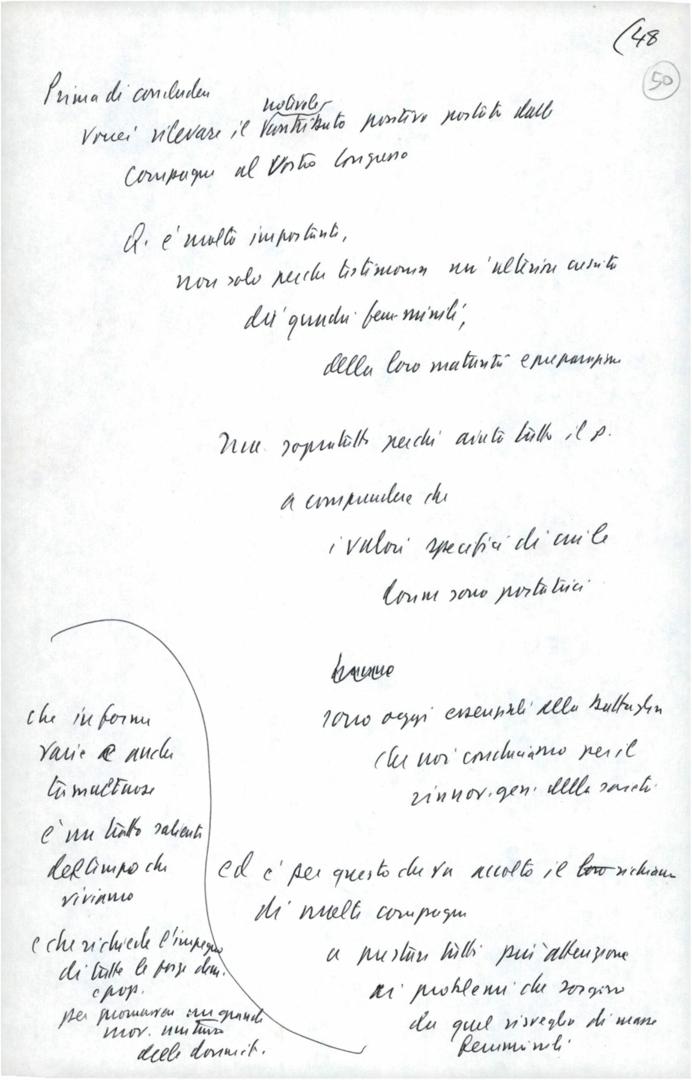 (48
50
Prima di concludere
notevole
vorrei rilevare il contributo positivo portato dalle
compagne al Vostro Congresso
Q. è molto importante,
non solo perché testimonia un'ulteriore crescita
dei quadri femminili,
della loro maturità e preparazione
ma soprattutto perché aiuta tutto il p.
a comprendere che
i valori specifici di cui le
donne sono portatrici
hanno
sono oggi essenziali alla battaglia
che noi conduciamo per il
rinnov. gen. della società
ed è per questo che va accolto il loro richiamo
di molte compagne
a prestare tutti più attenzione
ai problemi che sorgono
da quel risveglio di masse
femminili
che in forme
varie e anche
tumultuose
è un tratto saliente
del tempo che
viviamo
e che richiede l'impegno
di tutte le forze dem.
e pop.
per promuovere un grande
mov. unitario
delle donne it.